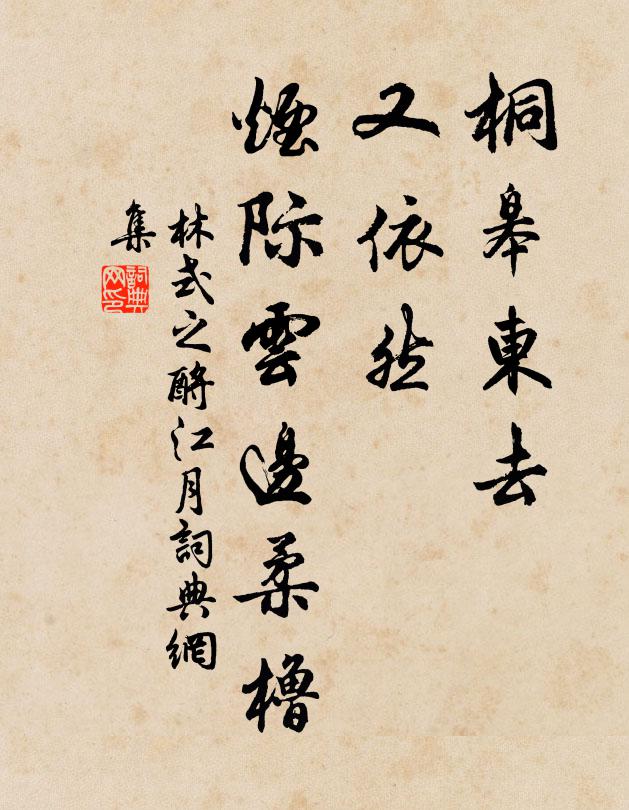 桐皋東去
又依然
煙际雲邊柔櫓
林式之酹江月詞典網
集
詞典
网印